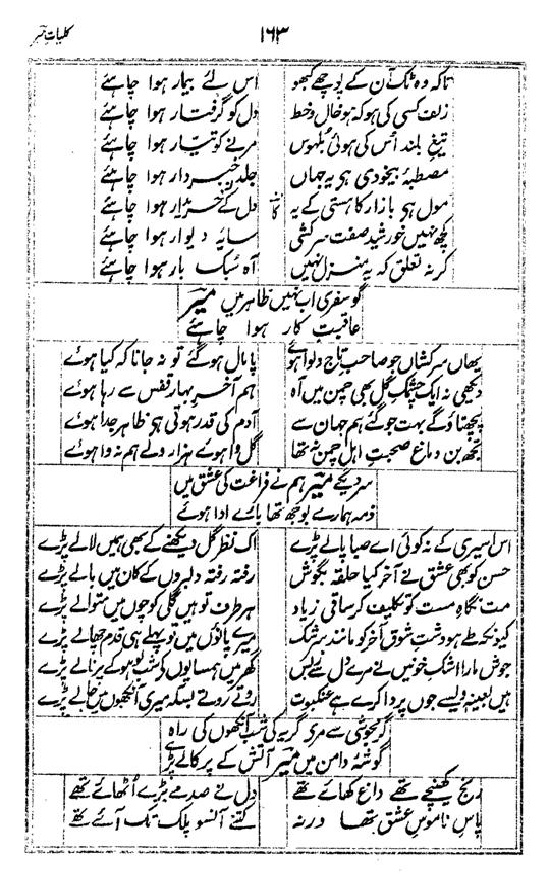 کلیاتِ میر
۱۶۳
تاکہ وہ ٹک آن کے پوچھے کبھو اس لئے بیمار ہوا چاہئے
زلف کسی کی ہو کہ ہو خال و خط دل کو گرفتار ہوا چاہئے
تیغِ بلند اُس کی ہوئی بُلہوس مرنے کو تیار ہوا چاہئے
مصطبۂ بیخودی ہی یہ جہاں جلد خبردار ہوا چاہئے
مول ہی بازار کا ہستی کے یہ دل کے خریدار ہوا چاہئے
کچھ نہیں خورشید صفت سرکشی سایہ دیوار ہوا چاہئے
کر نہ تعلق کہ یہ منزل نہیں آہ سُبک بار ہوا چاہئے
گو سفری اب نہیں ظاہر میں میرؔ
عاقبتِ کار ہوا چاہئے
یھاں سرکشاں جو صاحبِ تاج و لوا ہوئے پامال ہو گئے تو نہ جانا کہ کیا ہوئے
دیکھی نہ ایک چشمکِ گل بھی چمن میں آہ ہم آخرِ بہار قفس سے رہا ہوئے
پچھتاؤگے بہت جو گئے ہم جہان سے آدم کی قدر ہوتی ہی ظاہر جدا ہوئے
تجھ بن دماغِ صحبتِ اہلِ چمن نہ تھا گل وا ہوئے ہزار ولے ہم نہ وا ہوئے
سر دیکے میرؔ ہم نے فراغت کی عشق میں
ذمہ ہمارے بوجھ تھا بارے ادا ہوئے
اس اسیری کے نہ کوئی اے صبا پالے پڑے اک نظر گل دیکھنے کے بھی ہمیں لالے پڑے
حسن کو بھی عشق نے آخر کیا حلقہ بگوش رفتہ رفتہ دلبروں کے کان میں بالے پڑے
مت نگاہِ مست کو تکلیف کر ساقی زیاد ہر طرف تو ہیں گلی کوچوں میں متوالے پڑے
کیونکہ طے ہو دشتِ شوق آخر کو مانندِ سرشک میرے پاؤں میں تو پہلے ہی قدم چھالے پڑے
جوش مارا اشکِ خونیں نے مرے دل سے زبس گھر میں ہمسایوں کی شب لوہو کے پرنالے پڑے
ہیں بعینہ ویسے جوں پردا کرے ہے عنکبوت روتے روتے بسکہ میری آنکھوں میں جالے پڑے
گرمجوشی سے مری گریہ کی شب آنکھوں کی راہ
گوشۂ دامن میں میرؔ آتش کے پرکالے پڑے
رنج کھینچے تھے داغ کھائے تھے دل نے صدمے بڑے اُٹھائے تھے
پاسِ ناموسِ عشق تھا ورنہ کتنے آنسو پلک تک آئے تھے